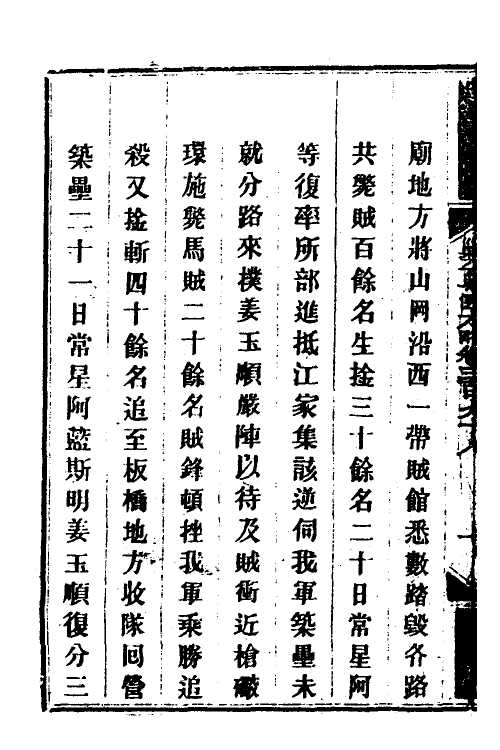 廟地方將山岡沿西一帶賊館悉數踏毀各路
共斃賊百餘名生擒三十餘名二十日常星阿
等復率所部進抵江家集該逆伺我軍築壘未
就分路來撲姜玉順嚴陣以待及賊衝近槍礮
環施斃馬賊二十餘名賊鋒頓挫我軍乘勝追
殺又擒斬四十餘名追至板橋地方收隊回營
築壘二十一日常星阿藍斯明姜玉順復分三